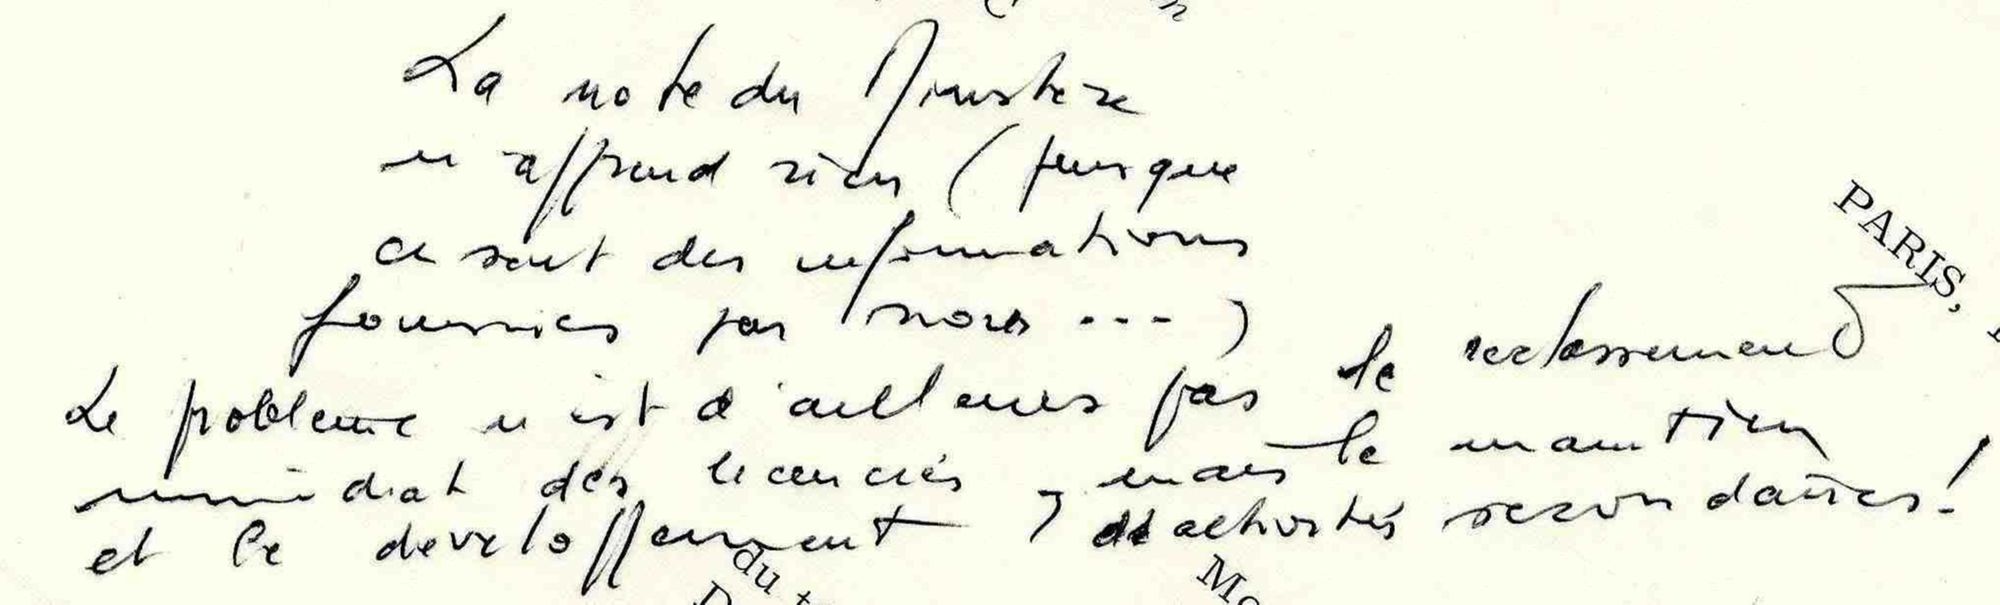 La note du Ministère
n'apprend rien (puisque
ce sont des informations
fournies par nous ---)
Le problème n'est d'ailleurs pas le reclassement
immédiat des licenciés, mais le maintien
et le développement d'activités secondaires!
PARIS,
du